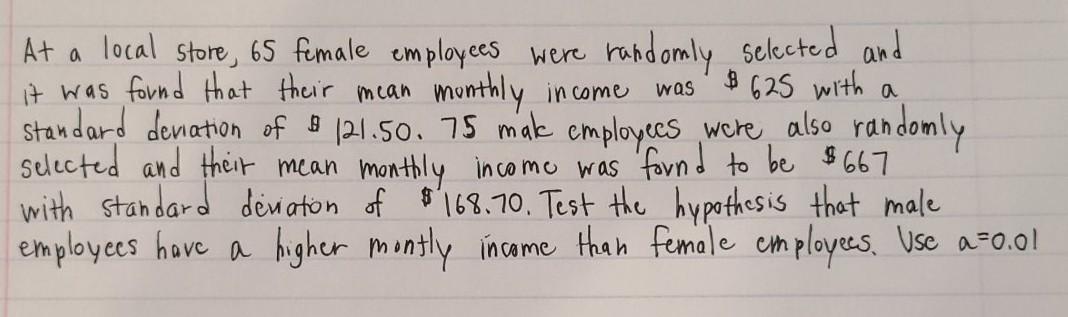 At a local store, 65 female employees were randomly selected and
it was found that their mean monthly income was $625 with a
standard deviation of $121.50. 75 male employees were also randomly
selected and their mean monthly income was found to be $667
with standard deviaton of $168.70. Test the hypothesis that male
employees have a higher montly income than female employees. Use a=0.01